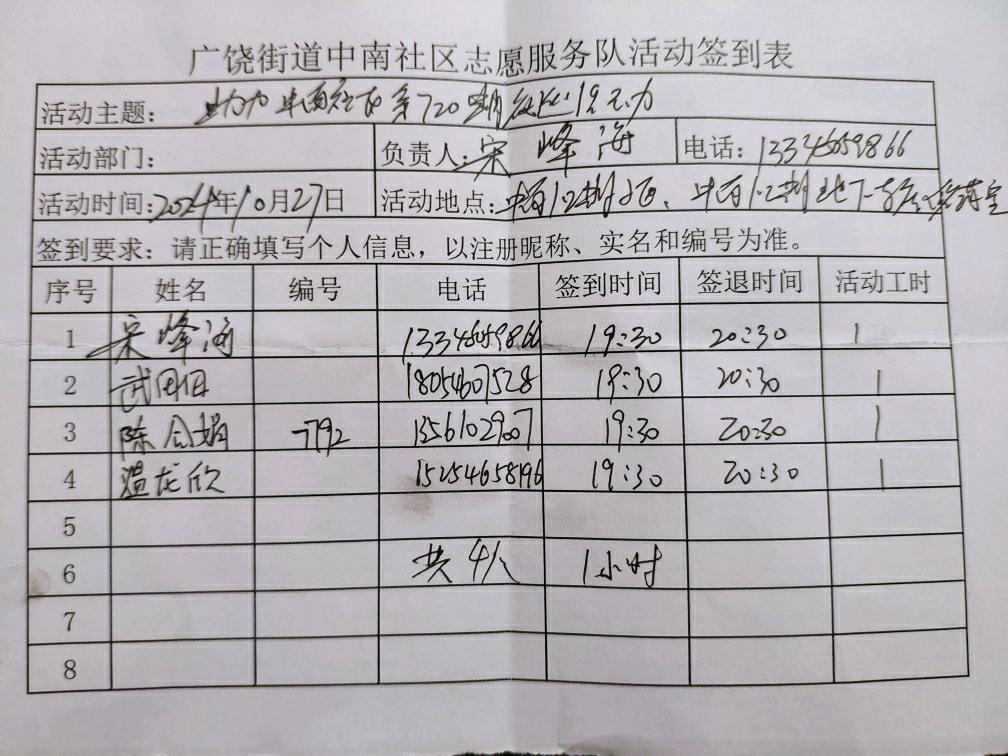 广饶街道中南社区志愿服务队活动签到表
活动主题： 助力中南社区第720期
活动部门： 负责人：宋峰海 电话：13346059866
活动时间：2024年10月27日 活动地点：
签到要求：请正确填写个人信息，以注册昵称、实名和编号为准。
序号 姓名 编号 电话 签到时间 签退时间 活动工时
1 宋峰海 13346059866 19:30 20:30 1
2 18054607528 19:30 20:30 1
3 陈 792 13561029007 19:30 20:30 1
4 温龙欣 15254658196 19:30 20:30 1
5
6 共4人 1小时
7
8